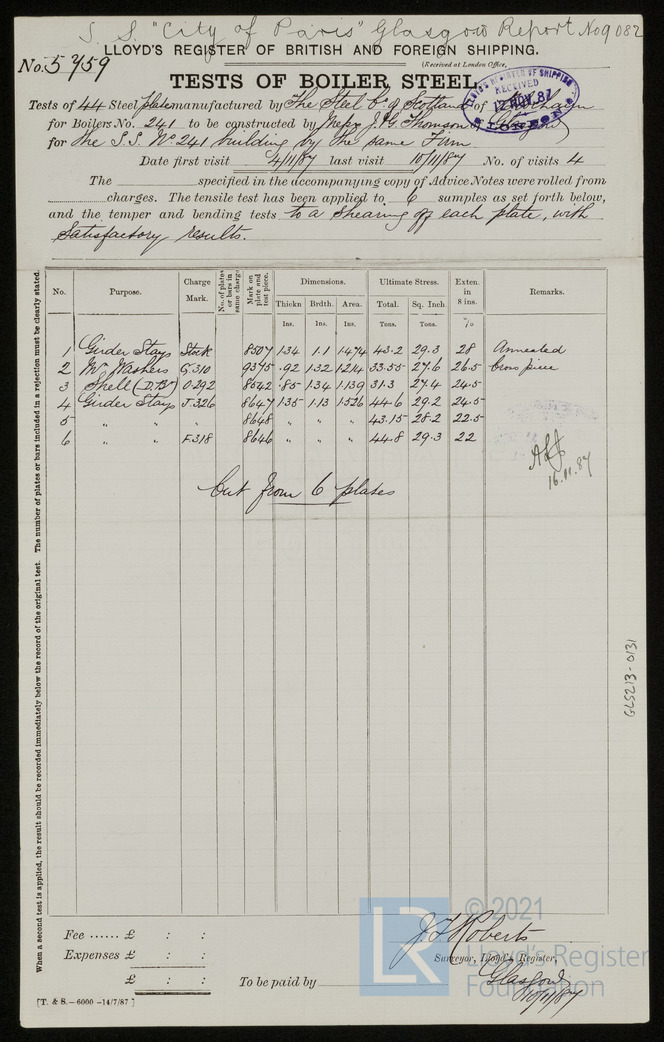 S. S. "City of Paris" Glasgow Report No 9082
LLOYD'S REGISTER OF BRITISH AND FOREIGN SHIPPING.
No. 5759
(Received at London Office,
TESTS OF BOILER STEEL
LLOYD'S REGISTER OF SHIPPING
RECEIVED
12 NOV. 87
LONDON
Tests of 44 Steel plates manufactured by The Steel Co. of Scotland of
for Boilers No. 241 to be constructed by Messrs J. & G. Thomson, Glasgow
for the S.S. No 241 building by the same Firm
Date first visit 4/11/87 last visit 10/11/87 No. of visits 4
The specified in the accompanying copy of Advice Notes were rolled from
charges. The tensile test has been applied to 6 samples as set forth below,
and the temper and bending tests to a shearing off each plate, with
Satisfactory results.
No. Purpose. Charge Mark. No. of plates or bars in same charge Mark on plate and test piece. Dimensions. Ultimate Stress. Exten. in 8 ins. Remarks.
Thickn Brdth. Area. Total. Sq. Inch
Ins. Ins. Ins. Tons. Tons. %
1 Girder Stays Stock 8507 1.34 1.1 1.474 43.2 29.3 28 Annealed
2 Mn Washers G.310 9375 .92 1.32 1.214 33.55 27.6 26.5 Cross piece
3 Shell (D.Bn) O.292 8542 .85 1.34 1.139 31.3 27.4 24.5
4 Girder Stays J.326 8647 1.35 1.13 1.526 44.6 29.2 24.5
5 " " " 8648 " " " 43.15 28.2 22.5
6 " " F.318 8646 " " " 44.8 29.3 22
16.11.87
Cut from 6 plates
When a second test is applied, the result should be recorded immediately below the record of the original test. The number of plates or bars included in a rejection must be clearly stated.
GLS213-0131
Fee ...... £ : :
Expenses £ : :
£ : :
J. F. Roberts
Surveyor, Lloyd's Register,
To be paid by
Glasgow
10/11/87
[T. & S.—6000 -14/7/87]
LR
© 2021
Lloyd's Register
Foundation